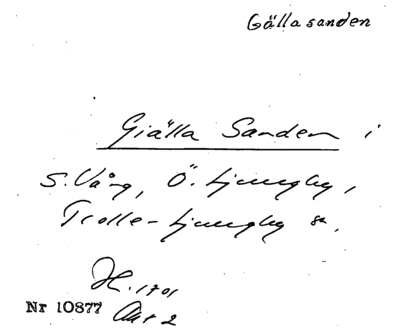 Gällasanden
Giälla Sanden i
S. Vång, Ö. Ljungby,
Trolle-Ljungby sn.
H. 1701
Nr 10877 Akt 2